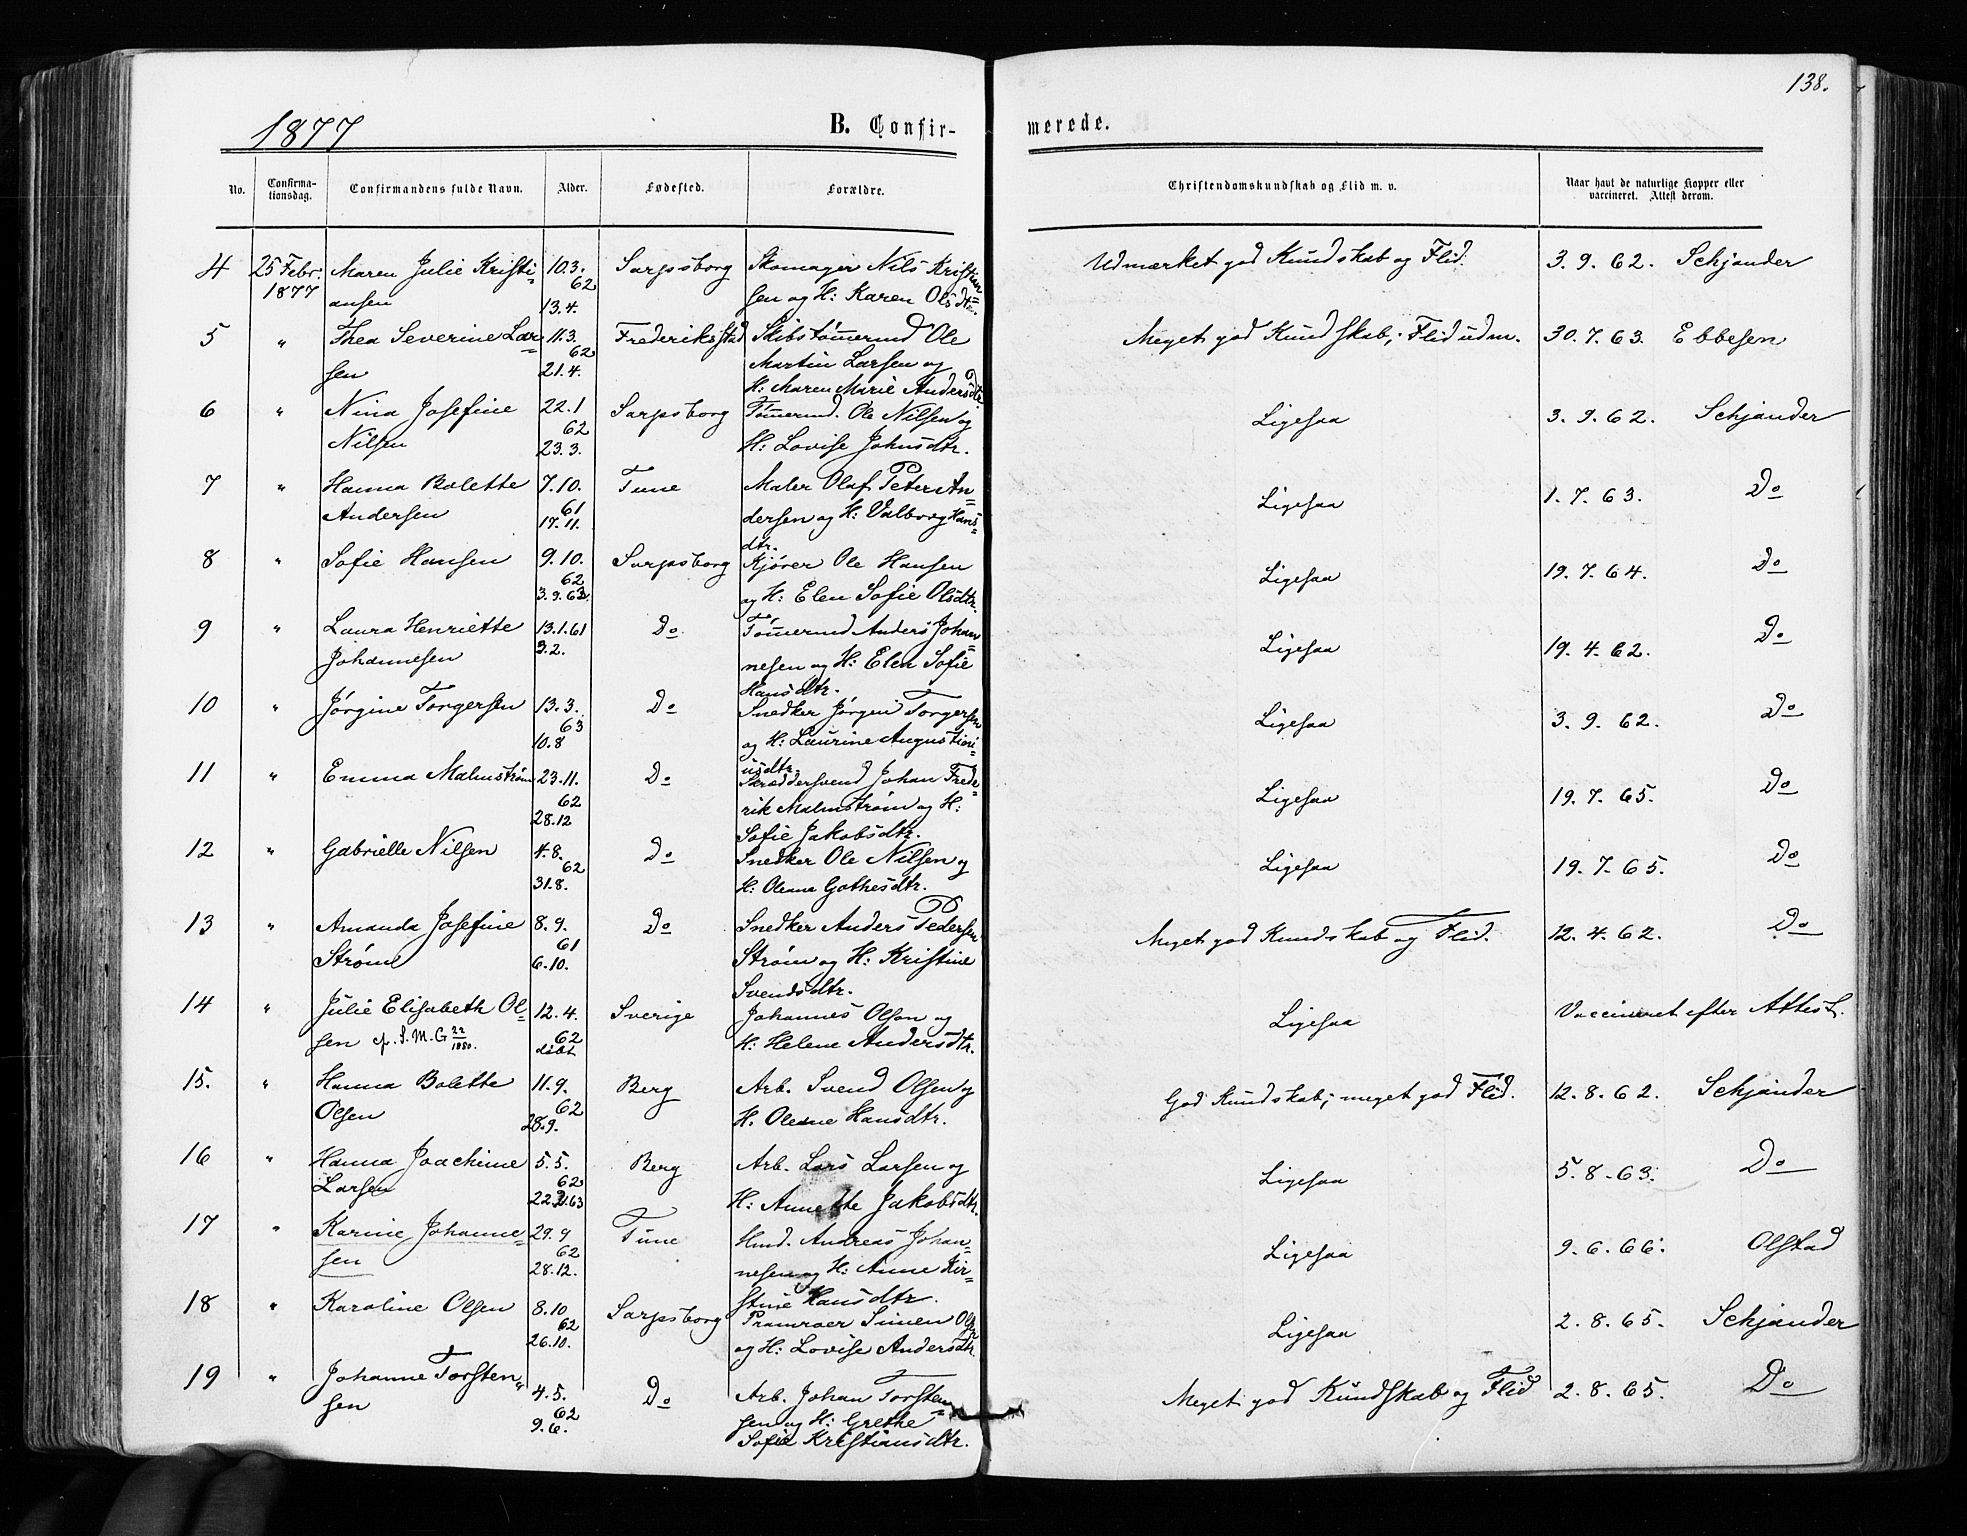 138.
1877 B. Confir- merede.
No. Confirma- tionsdag. Confirmandens fulde Navn. Alder. Fødested. Forældre. Christendomskundskab og Flid m. v. Naar havt de naturlige Kopper eller vaccineret. Attest derom.
4 25 Febr. Maren Julie Kristi- 10.3. Sarpsborg Skomager Nils Kristian- Udmærket god Kundskab og Flid. 3.9.62. Schjander
1877 ansen 62 sen og H: Karen Olsdtr.
13.4.
5 " Thea Severine Lar- 11.3. Frederiksstad Skibstømermd Ole Meget god Kundskab; Flid udm. 30.7.63. Ebbesen
sen 62 Martin Larsen og
21.4. H: Maren Marie Andersdtr.
6 " Nina Josefine 22.1 Sarpsborg Tømermd. Ole Nilsen og Ligesaa 3.9.62. Schjander
Nilsen 62 H: Lovise Johnsdtr.
23.3.
7 " Hanna Bolette 7.10. Tune Maler Olaf Peter An- Ligesaa 1.7.63. Do
Andersen 61 dersen og H: Valborg Hans-
17.11. dtr.
8 " Sofie Hansen 9.10. Sarpsborg Kjører Ole Hansen Ligesaa 19.7.64. Do
62 og H: Elen Sofie Olsdtr.
3.9.63.
9 " Laura Henriette 13.1.61 Do Tømermd Anders Johan- Ligesaa 19.4.62. Do
Johannesen 3.2. nesen og H: Elen Sofie
Hansdtr.
10 " Jørgine Torgersen 13.3. Do Snedker Jørgen Torgersen Ligesaa 3.9.62. Do
63 og H: Laurine Augustini-
10.8 usdtr.
11 " Emma Malmstrøm 23.11. Do Skræddersvend Johan Frede- Ligesaa 19.7.65. Do
62 rik Malmstrøm og H:
28.12 Sofie Jakobsdtr.
12 " Gabrielle Nilsen 4.8. Do Snedker Ole Nilsen og Ligesaa 19.7.65. Do
62 H: Oleane Gothesdtr.
31.8.
13 " Amanda Josefine 8.9. Do Snedker Anders Pedersen Meget god Kundskab og Flid. 12.4.62. Do
Strøm 61 Strøm og H: Kristine
6.10. Svendsdtr.
14 " Julie Elisabeth Ol- 12.4. Sverige Johannes Olson og Ligesaa Vaccineret efter Attest.
sen cf. S.M.G 22/1880. 62 H: Helene Andersdtr.
døbt
15. " Hanna Bolette 11.9. Berg Arb. Svend Olsen og God Kundskab; meget god Flid. 12.8.62. Schjander
Olsen 62 H. Oleane Hansdtr.
28.9.
16 " Hanna Joachime 5.5. Berg Arb. Lars Larsen og Ligesaa 5.8.63. Do
Larsen 62 H: Annette Jakobsdtr.
17 " Karine Johanne- 29.9 Tune Hmd. Andreas Johan- Ligesaa 9.6.66. Olstad
sen 62 nesen og H: Anne Kir-
28.12. stine Hansdtr.
18 " Karoline Olsen 8.10 Sarpsborg Pramroer Simen Olsen Ligesaa 2.8.65. Schjander
62 og H: Lovise Andersdtr.
26.10.
19 " Johanne Torsten- 4.5. Do Arb. Johan Torsten- Meget god Kundskab og Flid 2.8.65. Do
sen 62 sen og H: Grethe
9.6. Sofie Kristiansdtr.